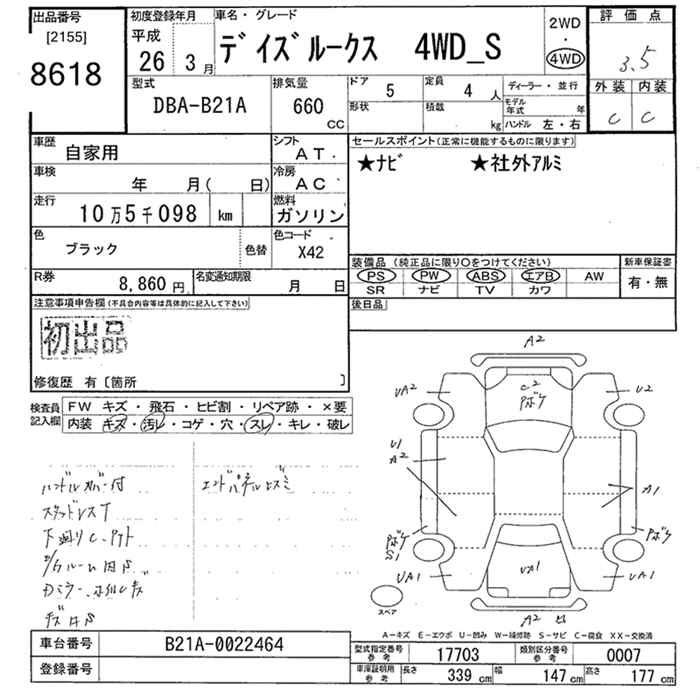 出品番号 初度登録年月 車名・グレード 2WD 評価点
[2155] 平成 デイズルークス 4WD_S ・ 3.5
8618 26 3月 4WD
型式 排気量 ドア 5 定員 4人 ディーラー・並行 外装 内装
DBA-B21A 660 CC 形状 積載 kg モデル年式 年 C C
ハンドル 左・右
車歴 自家用 シフト AT セールスポイント(正常に機能するものに限ります)
車検 年 月( 日) 冷房 AC ★ナビ ★社外アルミ
走行 10万5千098 km 燃料 ガソリン
色 ブラック 色替 色コード X42
装備品(純正品に限り○をつけてください) 新車保証書
R券 8,860円 名変通知期限 月 日 PS PW ABS エアB AW 有・無
SR ナビ TV カワ
注意事項申告欄(不具合内容等は具体的に記入して下さい) 後日品
初出品
修復歴 有〔箇所 〕
検査員記入欄 FW キズ・飛石・ヒビ割・リペア跡・×要
内装 キズ・汚レ・コゲ・穴・スレ・キレ・破レ
A2
UA2 C2 U2
Pボケ
U1
A2
A1
Pボケ Pボケ
S1
UA1 UA1 UA1
スペア A2
ハンドルカバー付 エンドパネルヒズミ
スタッドレスT
A-キズ E-エクボ U-凹み W-補修跡 S-サビ C-腐食 XX-交換済
車台番号 B21A-0022464 型式指定番号 参考 17703 類別区分番号 参考 0007
登録番号 車庫証明用 参考 長さ 339cm 幅 147cm 高さ 177cm